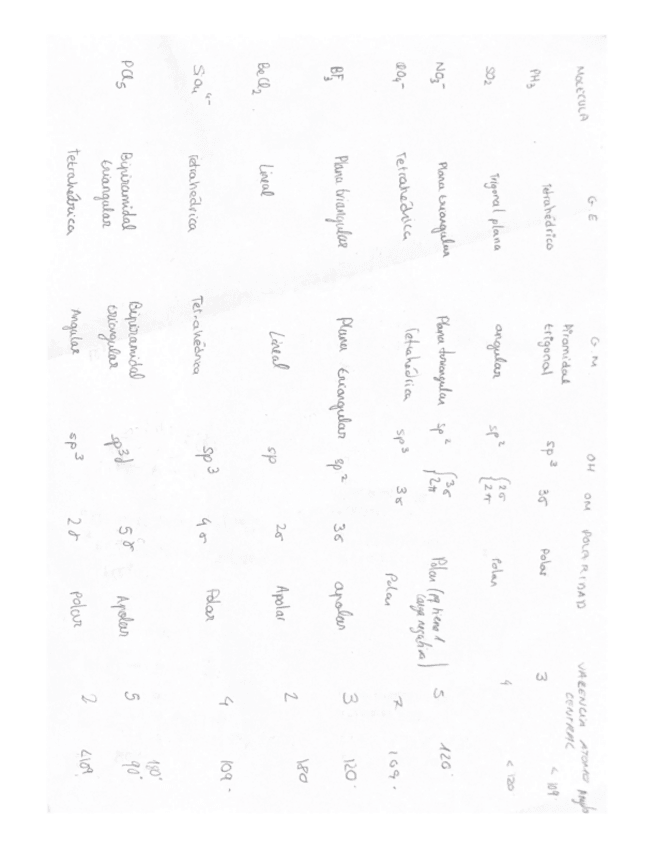 MOLÉCULA G E G M OH OM POLARIDAD VALENCIA ATOMO CENTRAL Anglo
PH3 Tetrahédrico Piramidal trigonal sp3 3σ Polar 3 < 109
SO2 Trigonal plana angular sp2 {2σ 2π Polar 4 < 120
NO3- Plana triangular Plana triangular sp2 {3σ 2π Polar (pq tiene 1 carga negativa) 5 120
Tetrahédrica Tetrahédrica sp3 3σ Polar 7 109.
BF3 Plana triangular Plana triangular sp2 3σ apolar 3 120
BeCl2 Lineal Lineal sp 2σ Apolar 2 180
SiO4 4- Tetrahédrica Tetrahédrica sp3 4σ Polar 4 109.
PCl5 Bipiramidal triangular Bipiramidal triangular sp3d 5σ Apolar 5 180° 90°
Tetrahédrica Angular sp3 2σ Polar 2 <109